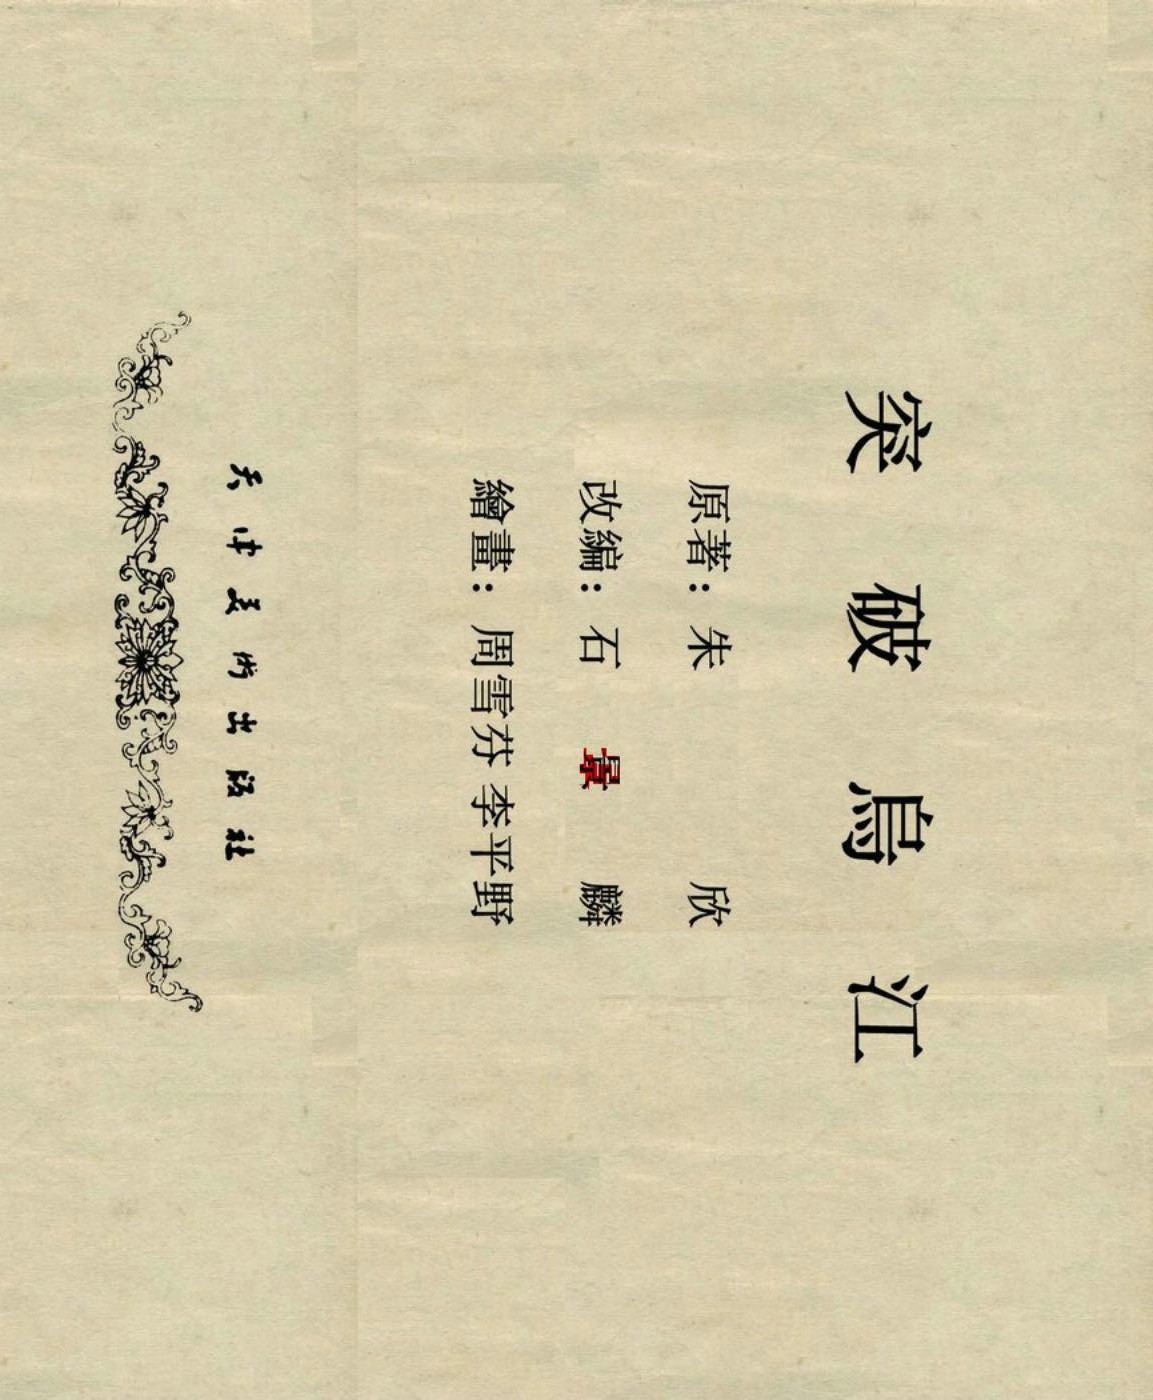 突破烏江
原著：朱欣
改編：石景麟
繪畫：周雪芬 李平野
天津美術出版社